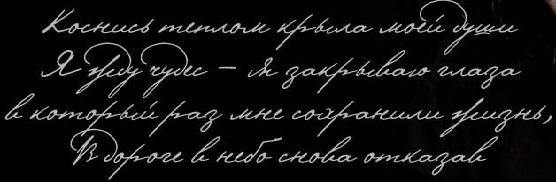 Коснись теплом крыла моей души
Я жду чудес – Я закрываю глаза
в который раз мне сохранили жизнь,
В дороге в небо снова отказав